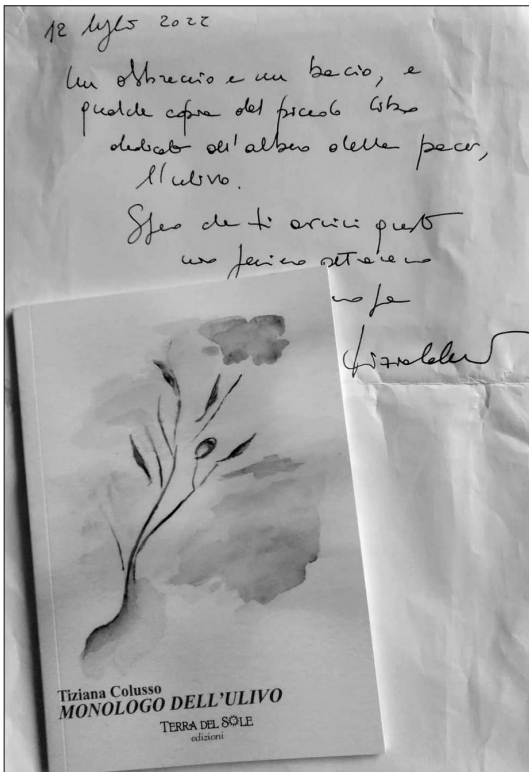 12 luglio 2022
Un abbraccio e un bacio, e
qualche copia del piccolo libro
dedicato all'albero della pace,
l'ulivo.
Spero che ti arrivi questo
uno
Tiziana Colusso
MONOLOGO DELL'ULIVO
TERRA DEL SOLE
edizioni